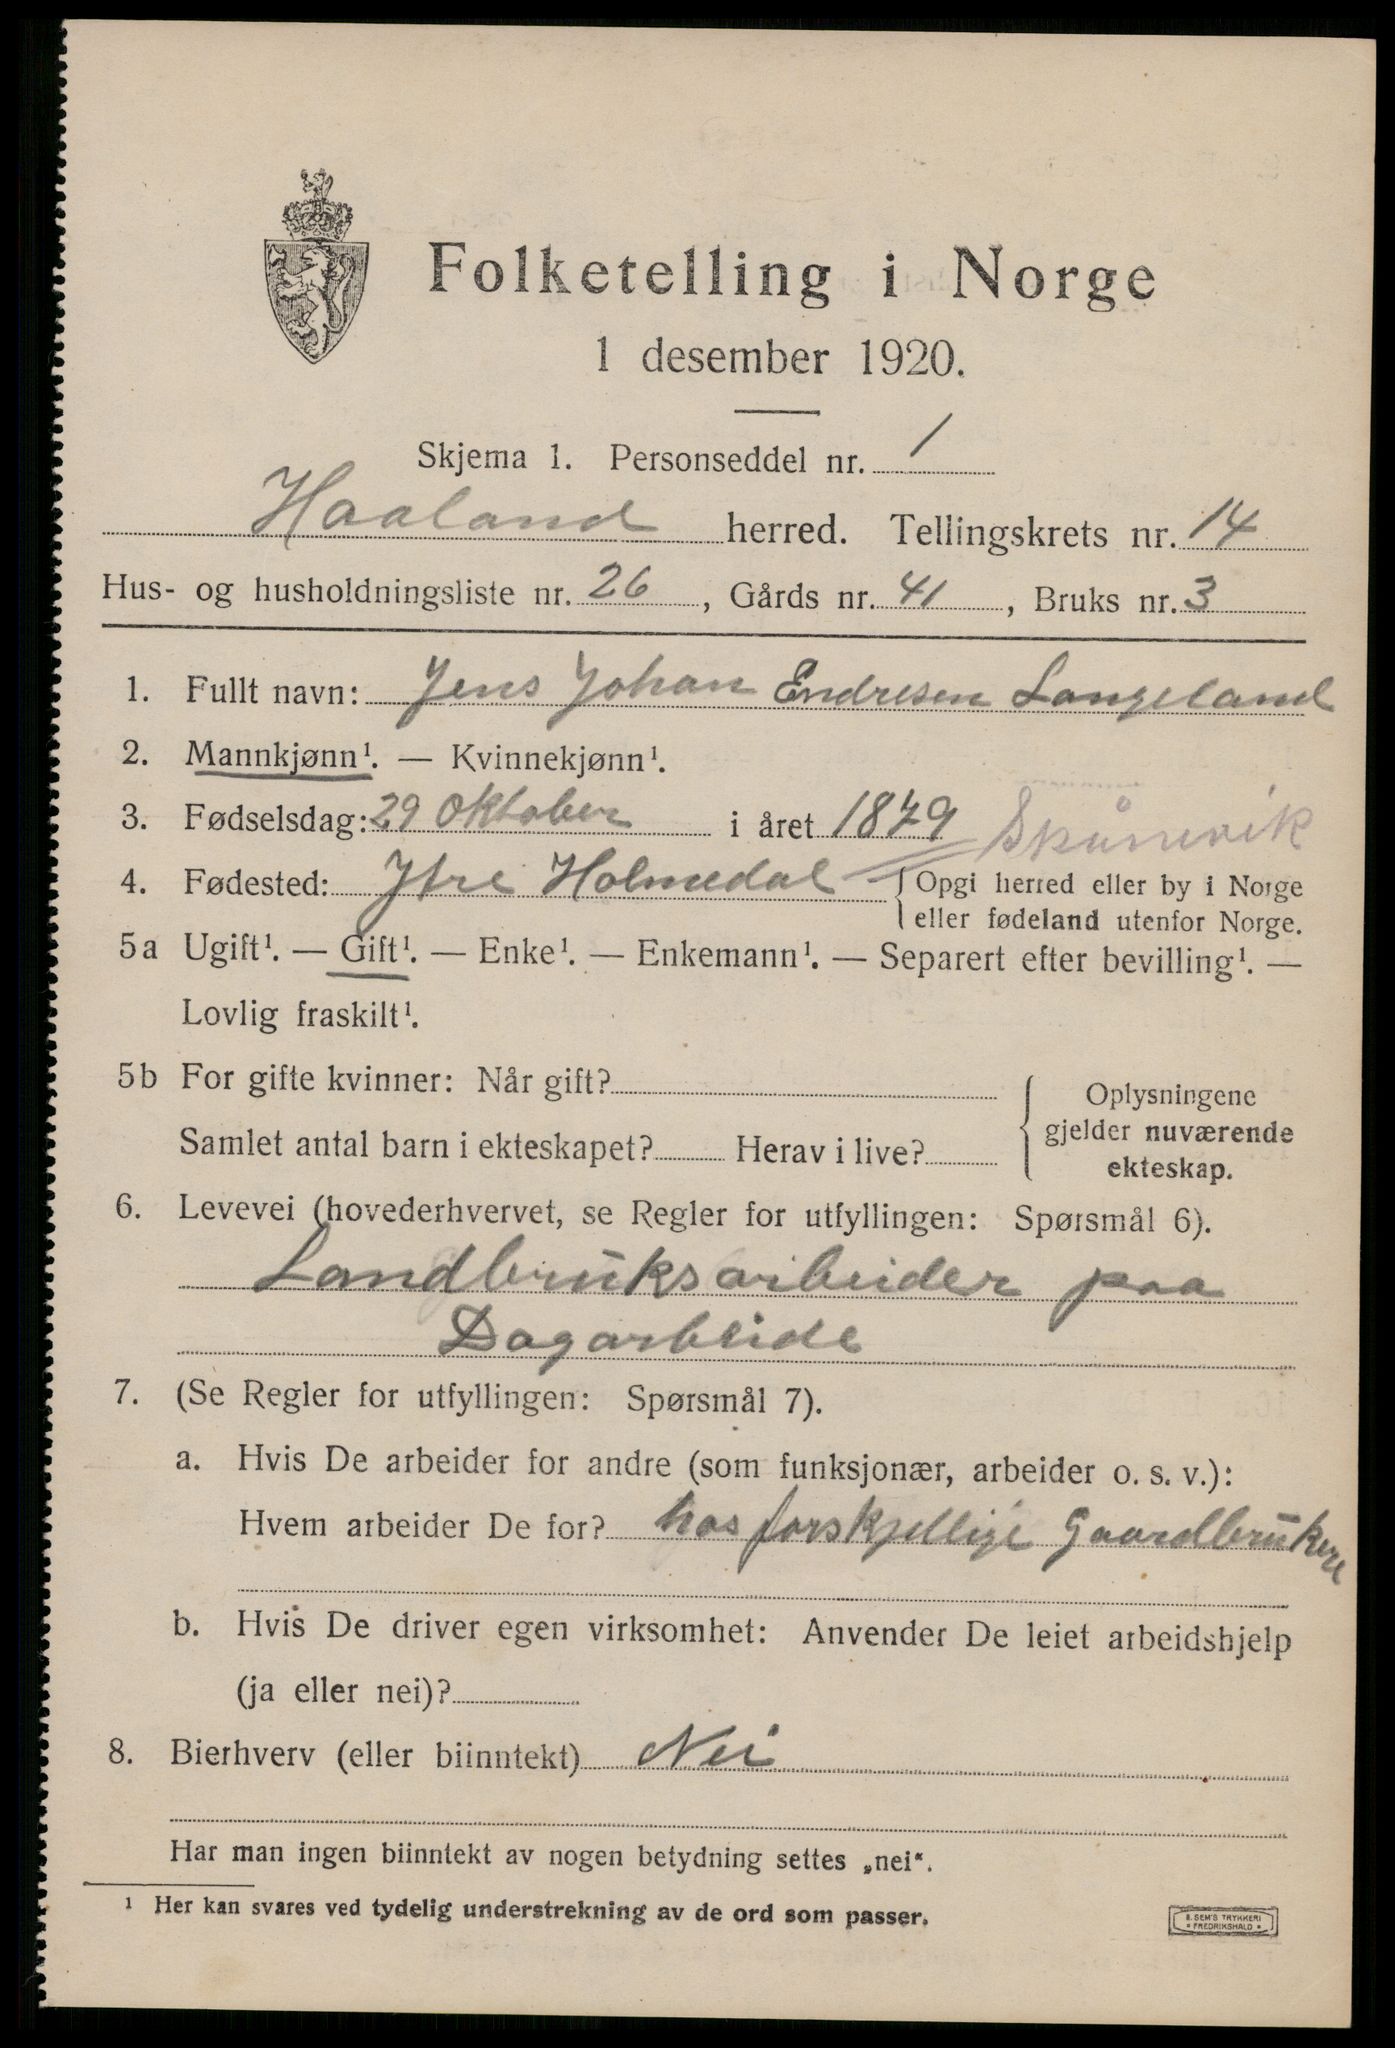 Folketelling i Norge
1 desember 1920.
Skjema 1. Personseddel nr. 1
Haaland herred. Tellingskrets nr. 14
Hus- og husholdningsliste nr. 26, Gårds nr. 41, Bruks nr. 3
1. Fullt navn: Jens Johan Endresen Langeland
2. Mannkjønn¹. — Kvinnekjønn¹.
3. Fødselsdag: 29 Oktober i året 1879 Skånevik
4. Fødested: Ytre Holmedal { Opgi herred eller by i Norge
eller fødeland utenfor Norge.
5a Ugift¹. — Gift¹. — Enke¹. — Enkemann¹. — Separert efter bevilling¹. —
Lovlig fraskilt¹.
5b For gifte kvinner: Når gift?
Samlet antal barn i ekteskapet? Herav i live?
{ Oplysningene
gjelder nuværende
ekteskap.
6. Levevei (hovederhvervet, se Regler for utfyllingen: Spørsmål 6).
Landbruksarbeider paa
Dagarbeide
7. (Se Regler for utfyllingen: Spørsmål 7).
a. Hvis De arbeider for andre (som funksjonær, arbeider o. s. v.):
Hvem arbeider De for? hos forskjellige Gaardbrukere
b. Hvis De driver egen virksomhet: Anvender De leiet arbeidshjelp
(ja eller nei)?
8. Bierhverv (eller biinntekt) Nei
Har man ingen biinntekt av nogen betydning settes „nei“.
¹ Her kan svares ved tydelig understrekning av de ord som passer.
B. SEM'S TRYKKERI
FREDRIKSHALD